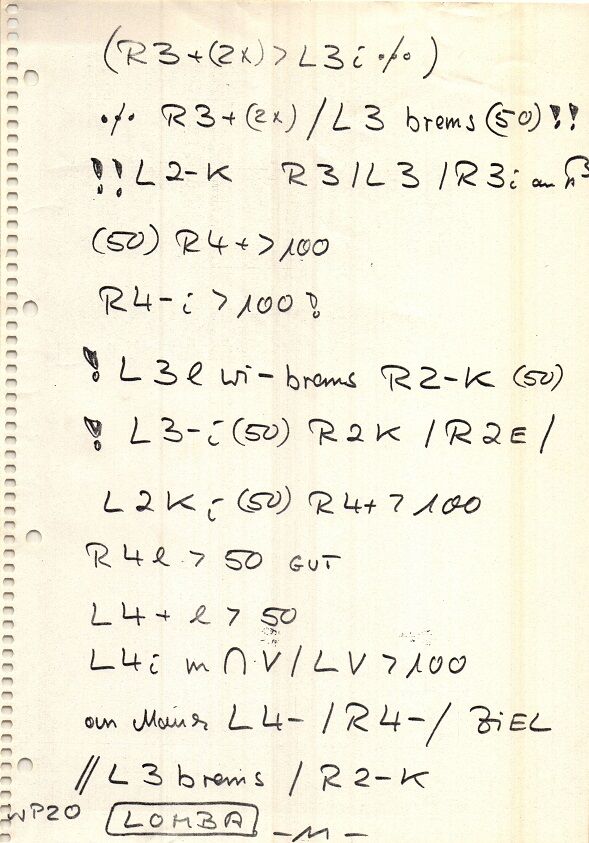 (R3+(2x)>L3i ·/·)
·/· R3+(2x)/L3 brems (50)!!
!!L2-K R3/L3/R3i an
(50) R4+>100
R4-i>100!
! L3l wi-brems R2-K (50)
! L3-i(50) R2K/R2E/
L2Ki(50) R4+>100
R4l>50 GUT
L4+l>50
L4i m ∩ V/LV>100
an Mauer L4-/R4-/ZiEL
//L3 brems/R2-K
WP20 LOMBA -M-